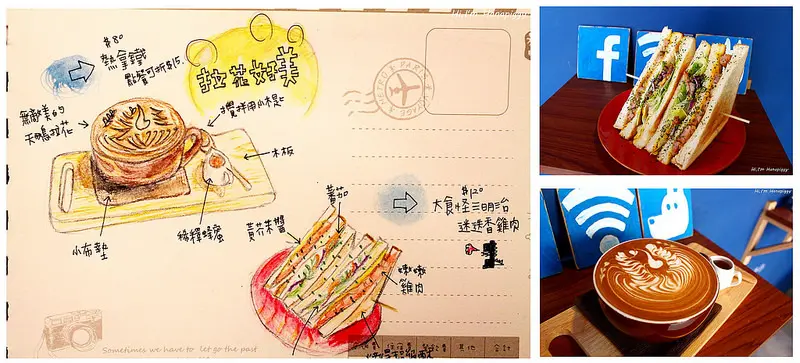 Hi, I'm Hanapiggy
$80
熱拿鐵
點餐可折$15.
拉花 美
無敵美的
天鵝拉花
攪拌用小木匙
木板
稀釋蜂蜜
小布墊
PARIS
蕃茄
黃芥末醬
$120
大食怪三明治
迷迭香雞肉
嫩嫩
雞肉
Sometimes we have to let go the past
其他 合計
f
Hi, I'm Hanapiggy
Hi, I'm Hanapiggy